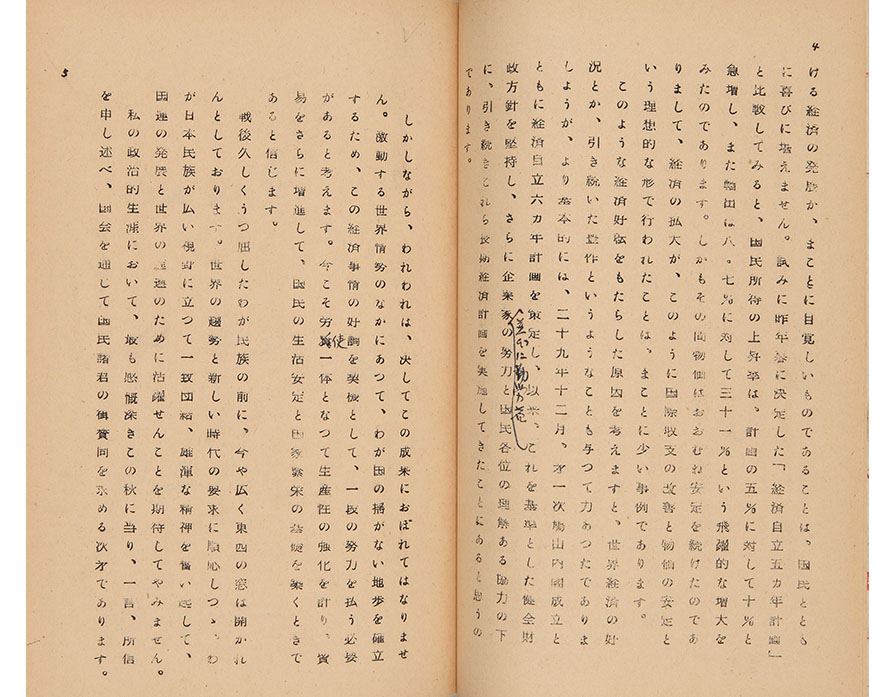 4
ける経済の発展が、まことに目覚しいものであることは、国民ととも
に喜びに堪えません。試みに昨年暮に決定した「経済自立五カ年計画」
と比較してみると、国民所得の上昇率は、計画の五％に対して十％と
急増し、また輸出は八・七％に対して三十一％という飛躍的な増大を
みたのであります。しかもその間物価はおおむね安定を続けたのであ
りまして、経済の拡大が、このように国際収支の改善と物価の安定と
いう理想的な形で行われたことは、まことに少い事例であります。
このような経済好転をもたらした原因を考えますと、世界経済の好
況とか、引き続いた豊作というようなことも与つて力あつたでありま
しようが、より基本的には、二十九年十二月、才一次鳩山内閣成立と
ともに経済自立六カ年計画を策定し、以来、これを基準とした健全財
政方針を堅持し、さらに企業家の努力と国民各位の理解ある協力の下
に、引き続きこれら長期経済計画を実施してきたことにあると思うの
であります。
5
しかしながら、われわれは、決してこの成果におぼれてはなりませ
ん。激動する世界情勢のなかにあつて、わが国の揺がない地歩を確立
するため、この経済事情の好調を契機として、一段の努力を払う必要
があると考えます。今こそ労使一体となつて生産性の強化を計り、貿
易をさらに増進して、国民の生活安定と国家繁栄の基礎を築くときで
あると信じます。
戦後久しくうつ屈したわが民族の前に、今や広く東西の窓は開かれ
んとしております。世界の趨勢と新しい時代の要求に順応しつゝ、わ
が日本民族が広い視野に立つて一致団結、雄渾な精神を奮い起して、
国運の発展と世界の進運のために活躍せんことを期待してやみません。
私の政治的生涯において、最も感慨深きこの秋に当り、一言、所信
を申し述べ、国会を通して国民諸君の御賛同を求める次才であります。